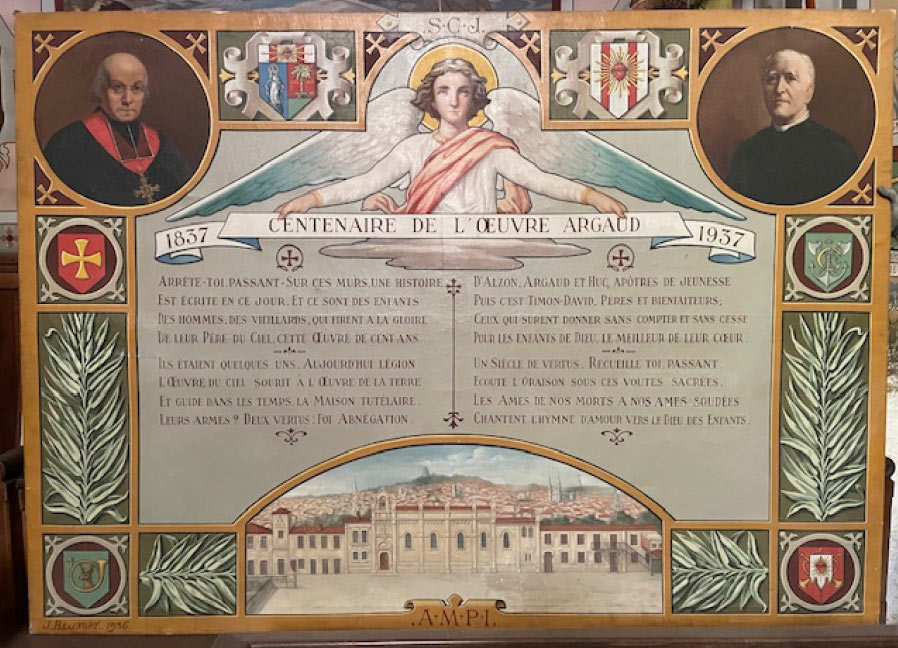 S.C.J.
CENTENAIRE DE L'ŒUVRE ARGAUD
1837
1937
ARRÊTE-TOI, PASSANT-SUR CES MURS, UNE HISTOIRE
EST ÉCRITE EN CE JOUR, ET CE SONT DES ENFANTS
DES HOMMES, DES VIEILLARDS, QUI FIRENT A LA GLOIRE
DE LEUR PÈRE DU CIEL, CETTE ŒUVRE DE CENT ANS.
ILS ÉTAIENT QUELQUES UNS, AUJOURD'HUI LÉGION
L'ŒUVRE DU CIEL SOURIT À L'ŒUVRE DE LA TERRE
ET GUIDE DANS LES TEMPS, LA MAISON TUTÉLAIRE.
LEURS ARMES ? DEUX VERTUS : FOI ABNÉGATION.
D'ALZON, ARGAUD ET HUC, APÔTRES DE JEUNESSE
PUIS C'EST TIMON-DAVID, PÈRES ET BIENFAITEURS,
CEUX QUI SURENT DONNER SANS COMPTER ET SANS CESSE
POUR LES ENFANTS DE DIEU, LE MEILLEUR DE LEUR CŒUR.
UN SIÈCLE DE VERTUS, RECUEILLE TOI, PASSANT,
ECOUTE L'ORAISON SOUS CES VOUTES SACRÉES,
LES AMES DE NOS MORTS A NOS AMES SOUDÉES
CHANTENT L'HYMNE D'AMOUR VERS LE DIEU DES ENFANTS.
A.M.P.I.
1936